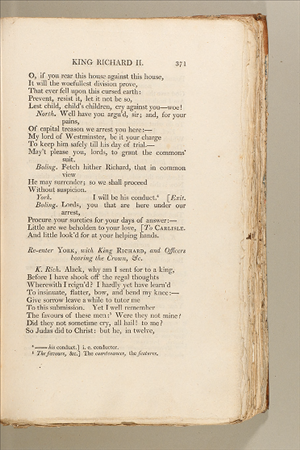 KING RICHARD II. 371
O, if you rear this house against this house,
It will the woefullest division prove,
That ever fell upon this cursed earth:
Prevent, resist it, let it not be so,
Lest child, child's children, cry against you—woe!
North. Well have you argu'd, sir; and, for your
pains,
Of capital treason we arrest you here:—
My lord of Westminster, be it your charge
To keep him safely till his day of trial.—
May't please you, lords, to grant the commons'
suit.
Boling. Fetch hither Richard, that in common
view
He may surrender; so we shall proceed
Without suspicion.
York. I will be his conduct.⁴ [Exit.
Boling. Lords, you that are here under our
arrest,
Procure your sureties for your days of answer:—
Little are we beholden to your love, [To CARLISLE.
And little look'd for at your helping hands.
Re-enter YORK, with King RICHARD, and Officers
bearing the Crown, &c.
K. Rich. Alack, why am I sent for to a king,
Before I have shook off the regal thoughts
Wherewith I reign'd? I hardly yet have learn'd
To insinuate, flatter, bow, and bend my knee:—
Give sorrow leave a while to tutor me
To this submission. Yet I well remember
The favours of these men:⁵ Were they not mine?
Did they not sometime cry, all hail! to me?
So Judas did to Christ: but he, in twelve,
⁴ —— his conduct.] i. e. conductor.
⁵ The favours, &c.] The countenances, the features.